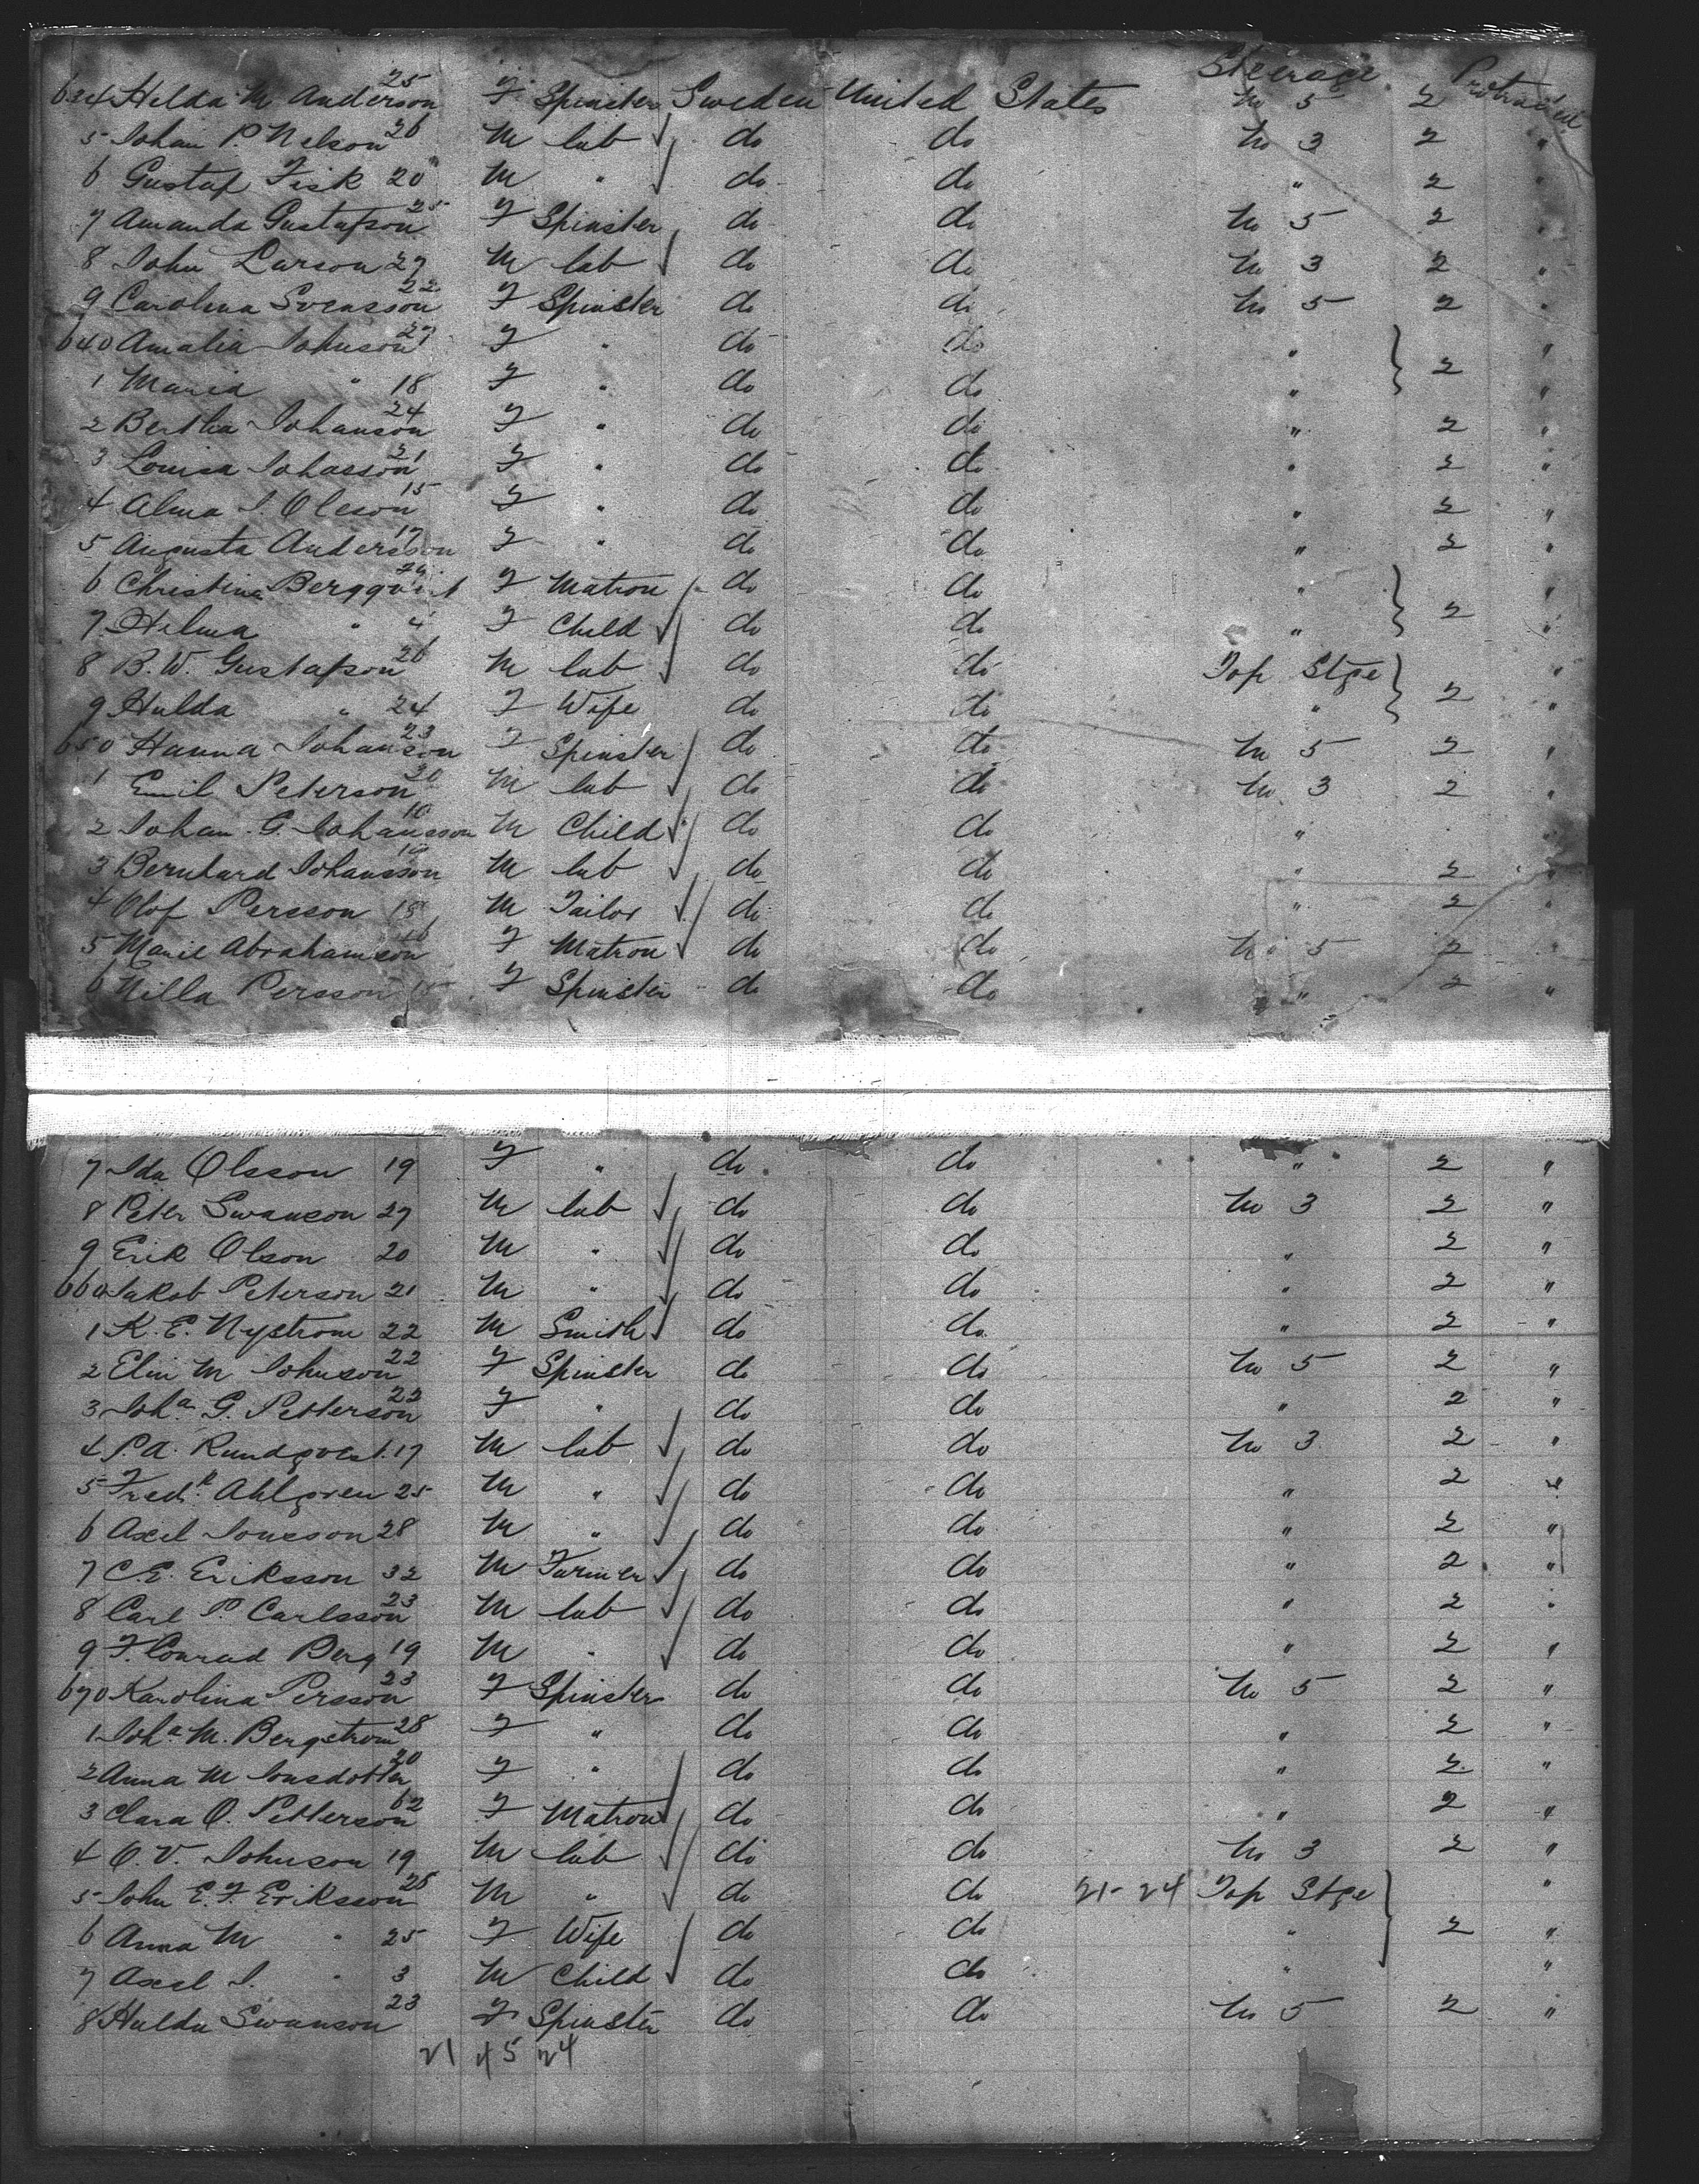 Steerage Protracted
634 Hilda M Anderson 25 F Spinster Sweden United States No 5 2
5 Johan P. Nelson 26 M lab do do No 3 2 "
6 Gustaf Fisk 20 M " do do " 2 "
7 Amanda Gustafson 25 F Spinster do do No 5 2 "
8 John Larson 27 M lab do do No 3 2 "
9 Carolina Svensson 22 F Spinster do do No 5 2 "
640 Amalia Johnson 27 F " do do " "
1 Maria " 18 F " do do " 2 "
2 Bertha Johanson 24 F " do do " 2 "
3 Louisa Johasson 21 F " do do " 2 "
4 Alma I. Oleson 15 F " do do " 2 "
5 Augusta Andersson 17 F " do do " 2 "
6 Christina Bergqvist F Matron do do " "
7 Hilma " 4 F Child do do " 2 "
8 B. W. Gustafson 26 M lab do do Top Stge "
9 Hulda " 24 F Wife do do " 2 "
650 Hanna Johanson 23 F Spinster do do No 5 2 "
1 Emil Peterson 20 M lab do do No 3 2 "
2 Johan G. Johansson 10 M Child do do " "
3 Bernhard Johansson 19 M lab do do " 2 "
4 Olof Persson 18 M Tailor do do " 2 "
5 Marie Abrahamson F Matron do do No 5 2 "
6 Nilla Persson F Spinster do do " 2 "
7 Ida Olsson 19 F " do do " 2 "
8 Peter Swanson 27 M lab do do No 3 2 "
9 Erik Olson 20 M " do do " 2 "
660 Jakob Peterson 21 M " do do " 2 "
1 K. E. Nystrom 22 M Smith do do " 2 "
2 Elin M Johnson 22 F Spinster do do No 5 2 "
3 Joha G. Petterson 22 F " do do " 2 "
4 P. A. Rundqvest 17 M lab do do No 3 2 "
5 Fredk Ahlgren 25 M " do do " 2 "
6 Axel Jonsson 28 M " do do " 2 "
7 C. E. Eriksson 32 M Farmer do do " 2 "
8 Carl P. Carlsson 23 M lab do do " 2 "
9 F. Conrad Berg 19 M " do do " 2 "
670 Karolina Persson 23 F Spinster do do No 5 2 "
1 Joha M. Bergstrom 28 F " do do " 2 "
2 Anna M Jonsdotter 20 F " do do " 2 "
3 Clara O. Petterson 62 F Matron do do " 2 "
4 O. V. Johnson 19 M lab do do No 3 2 "
5 John E. F. Eriksson 28 M " do do 21-24 Top Stge "
6 Anna M " 25 F Wife do do " 2 "
7 Axel I. " 3 M Child do do " "
8 Hulda Swanson 23 F Spinster do do No 5 2 "
21 45 24